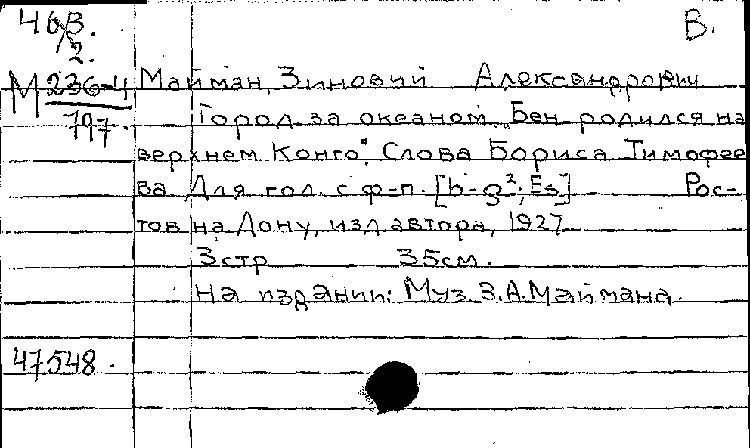 46В.
2.
В.
М 236-4
797.
Майман, Зиновий Александрович
Город за океаном. „Бен родился на
верхнем Конго". Слова Бориса Тимофее
ва. Для гол. с ф-п. [b-g²; Es] Рос-
тов на Дону, изд. автора, 1927
3стр 35см.
На издании: Муз. З.А. Маймана.
47548.